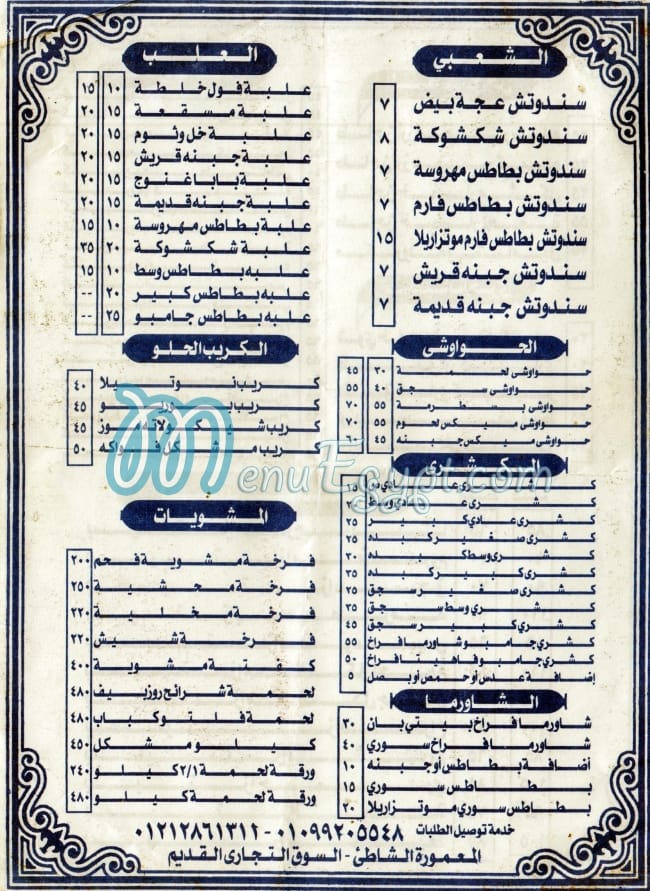 الشعبي
سندوتش عجة بيض ٧
سندوتش شكشوكة ٨
سندوتش بطاطس مهروسة ٧
سندوتش بطاطس فارم ٧
سندوتش بطاطس فارم موتزاريلا ١٥
سندوتش جبنه قريش ٧
سندوتش جبنه قديمة ٧
الحواوشى
حواوشى لحمة ٣٠ ٤٥
حواوشى سجق ٤٠ ٥٥
حواوشى بسطرمة ٥٥ ٧٠
حواوشى ميكس لحوم ٥٥ ٧٠
حواوشى ميكس جبنه ٤٥
الكشرى
كشرى
كشرى وسط
كشرى عادي كبير ٢٥
كشرى صغير كبده ٢٥
كشرى وسط كبده ٣٠
كشرى كبير كبده ٣٥
كشرى صغير سجق ٢٥
كشرى وسط سجق ٣٥
كشرى كبير سجق ٤٥
كشرى جامبو شاورما فراخ ٥٥
كشرى جامبو فاهيتا فراخ ٥٠
إضافة عدس أو حمص أو بصل ٥
الشاورما
شاورما فراخ بيتي بان ٣٠
شاورما فراخ سوري ٤٠
أضافة بطاطس أو جبنه ١٠
بطاطس سوري ١٥
بطاطس سوري موتزاريلا ٢٠
العلب
علبة فول خلطة ١٠ ١٥
علبة مسقعة ١٥ ٢٠
علبة خل وثوم ١٥ ٢٠
علبة جبنه قريش ١٥ ٢٠
علبة بابا غنوج ١٥ ٢٠
علبة جبنه قديمة ١٥ ٢٠
علبة بطاطس مهروسة ١٠ ١٥
علبة شكشوكة ٢٠ ٣٥
علبه بطاطس وسط ١٠ ١٥
علبه بطاطس كبير ٢٠ --
علبه بطاطس جامبو ٢٥ --
الكريب الحلو
كريب نوتيلا ٤٠
كريب بوريو ٤٥
كريب شيكولاته موز ٤٥
كريب مشكل فواكه ٥٠
MenuEgypt.com
المشويات
فرخة مشوية فحم ٢٠٠
فرخة محشية ٢٥٠
فرخة مخلية ٢٢٠
فرخة شيش ٢٢٠
كفتة مشوية ٤٠٠
لحمة شرائح روزبيف ٤٨٠
لحمة فلتو كباب ٤٨٠
كيلو مشكل ٤٥٠
ورقة لحمة ١/٢ كيلو ٢٤٠
ورقة لحمة كيلو ٤٨٠
خدمة توصيل الطلبات ٠١٠٩٩٢٠٥٥٤٨ - ٠١٢١٢٨٦١٣١١
المعمورة الشاطئ - السوق التجارى القديم